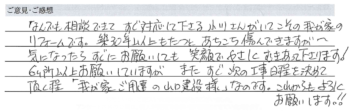 ご意見・ご感想
なんでも相談できて すぐ対応して下さる 小川さんがいてこその我が家の
リフォームです。築30年以上もたつと あちこち傷んできますが
気になったら すぐにお願いしても 笑顔でやさしくおちあって下さいます!!
6ヶ所以上お願いしていますが また すぐ次の工事日程を決めて
頂く程 "我が家ご用達の小口建設様" なのです。これからもよろしく
お願いします。!!